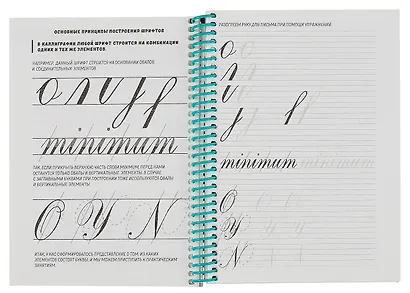 ОСНОВНЫЕ ПРИНЦИПЫ ПОСТРОЕНИЯ ШРИФТОВ
В КАЛЛИГРАФИИ ЛЮБОЙ ШРИФТ СТРОИТСЯ НА КОМБИНАЦИИ
ОДНИХ И ТЕХ ЖЕ ЭЛЕМЕНТОВ.
НАПРИМЕР, ДАННЫЙ ШРИФТ СТРОИТСЯ НА ОСНОВАНИИ ОВАЛОВ
И СОЕДИНИТЕЛЬНЫХ ЭЛЕМЕНТОВ.
minimum
ТАК, ЕСЛИ ПРИКРЫТЬ ВЕРХНЮЮ ЧАСТЬ СЛОВА MINIMUM, ПЕРЕД НАМИ
ОСТАНУТСЯ ТОЛЬКО ОВАЛЫ И ВЕРТИКАЛЬНЫЕ ЭЛЕМЕНТЫ. В СЛУЧАЕ
С ЗАГЛАВНЫМИ БУКВАМИ ПРИ ПОСТРОЕНИИ ТОЖЕ ИСПОЛЬЗУЮТСЯ ОВАЛЫ
И ВЕРТИКАЛЬНЫЕ ЭЛЕМЕНТЫ.
O Y N
ИТАК, У НАС СФОРМИРОВАЛОСЬ ПРЕДСТАВЛЕНИЕ О ТОМ, ИЗ КАКИХ
ЭЛЕМЕНТОВ СОСТОЯТ БУКВЫ, И МЫ МОЖЕМ ПРИСТУПИТЬ К ПРАКТИЧЕСКИМ
ЗАНЯТИЯМ.
РАЗОГРЕЕМ РУКУ ДЛЯ ПИСЬМА ПРИ ПОМОЩИ УПРАЖНЕНИЙ.
minimum
O
Y
N